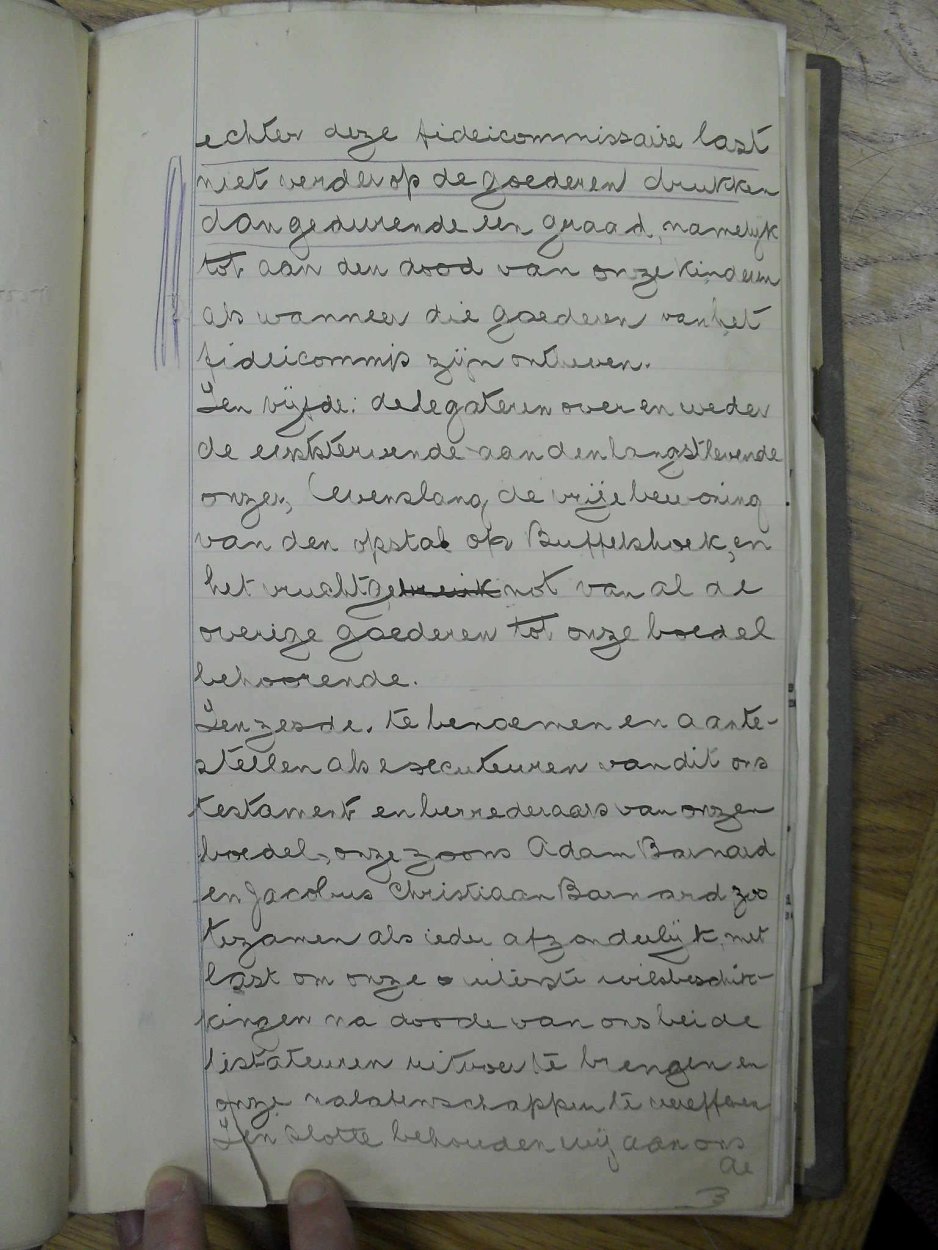 echter deze fideicommissaire last
niet verder op de goederen drukken
dan gedurende een graad, namelijk
tot aan den dood van onze kinderen
als wanneer die goederen van het
fideicommis zijn ontheven.
Ten vijfde: delegateren over en weder
de eerststervende aan den langstlevende
onzer, levenslang, de vrije bewoning
van den opstal op Buffelshoek, en
het vruchtgebruik not van al de
overige goederen tot onze boedel
behoorende.
Ten zesde, te benoemen en aante-
stellen als executeuren van dit ons
testament en berrederaars van onzen
boedel, onze zoons Adam Barnard
en Jacobus Christiaan Barnard zoo
tezamen als ieder afzonderlijk, met
last om onze uiterste wilsbeschik-
kingen na doode van ons beide
testateuren uitvoer te brengen en
onze nalatenschappen te vereffenen
Ten slotte behouden wij aan ons
de
3